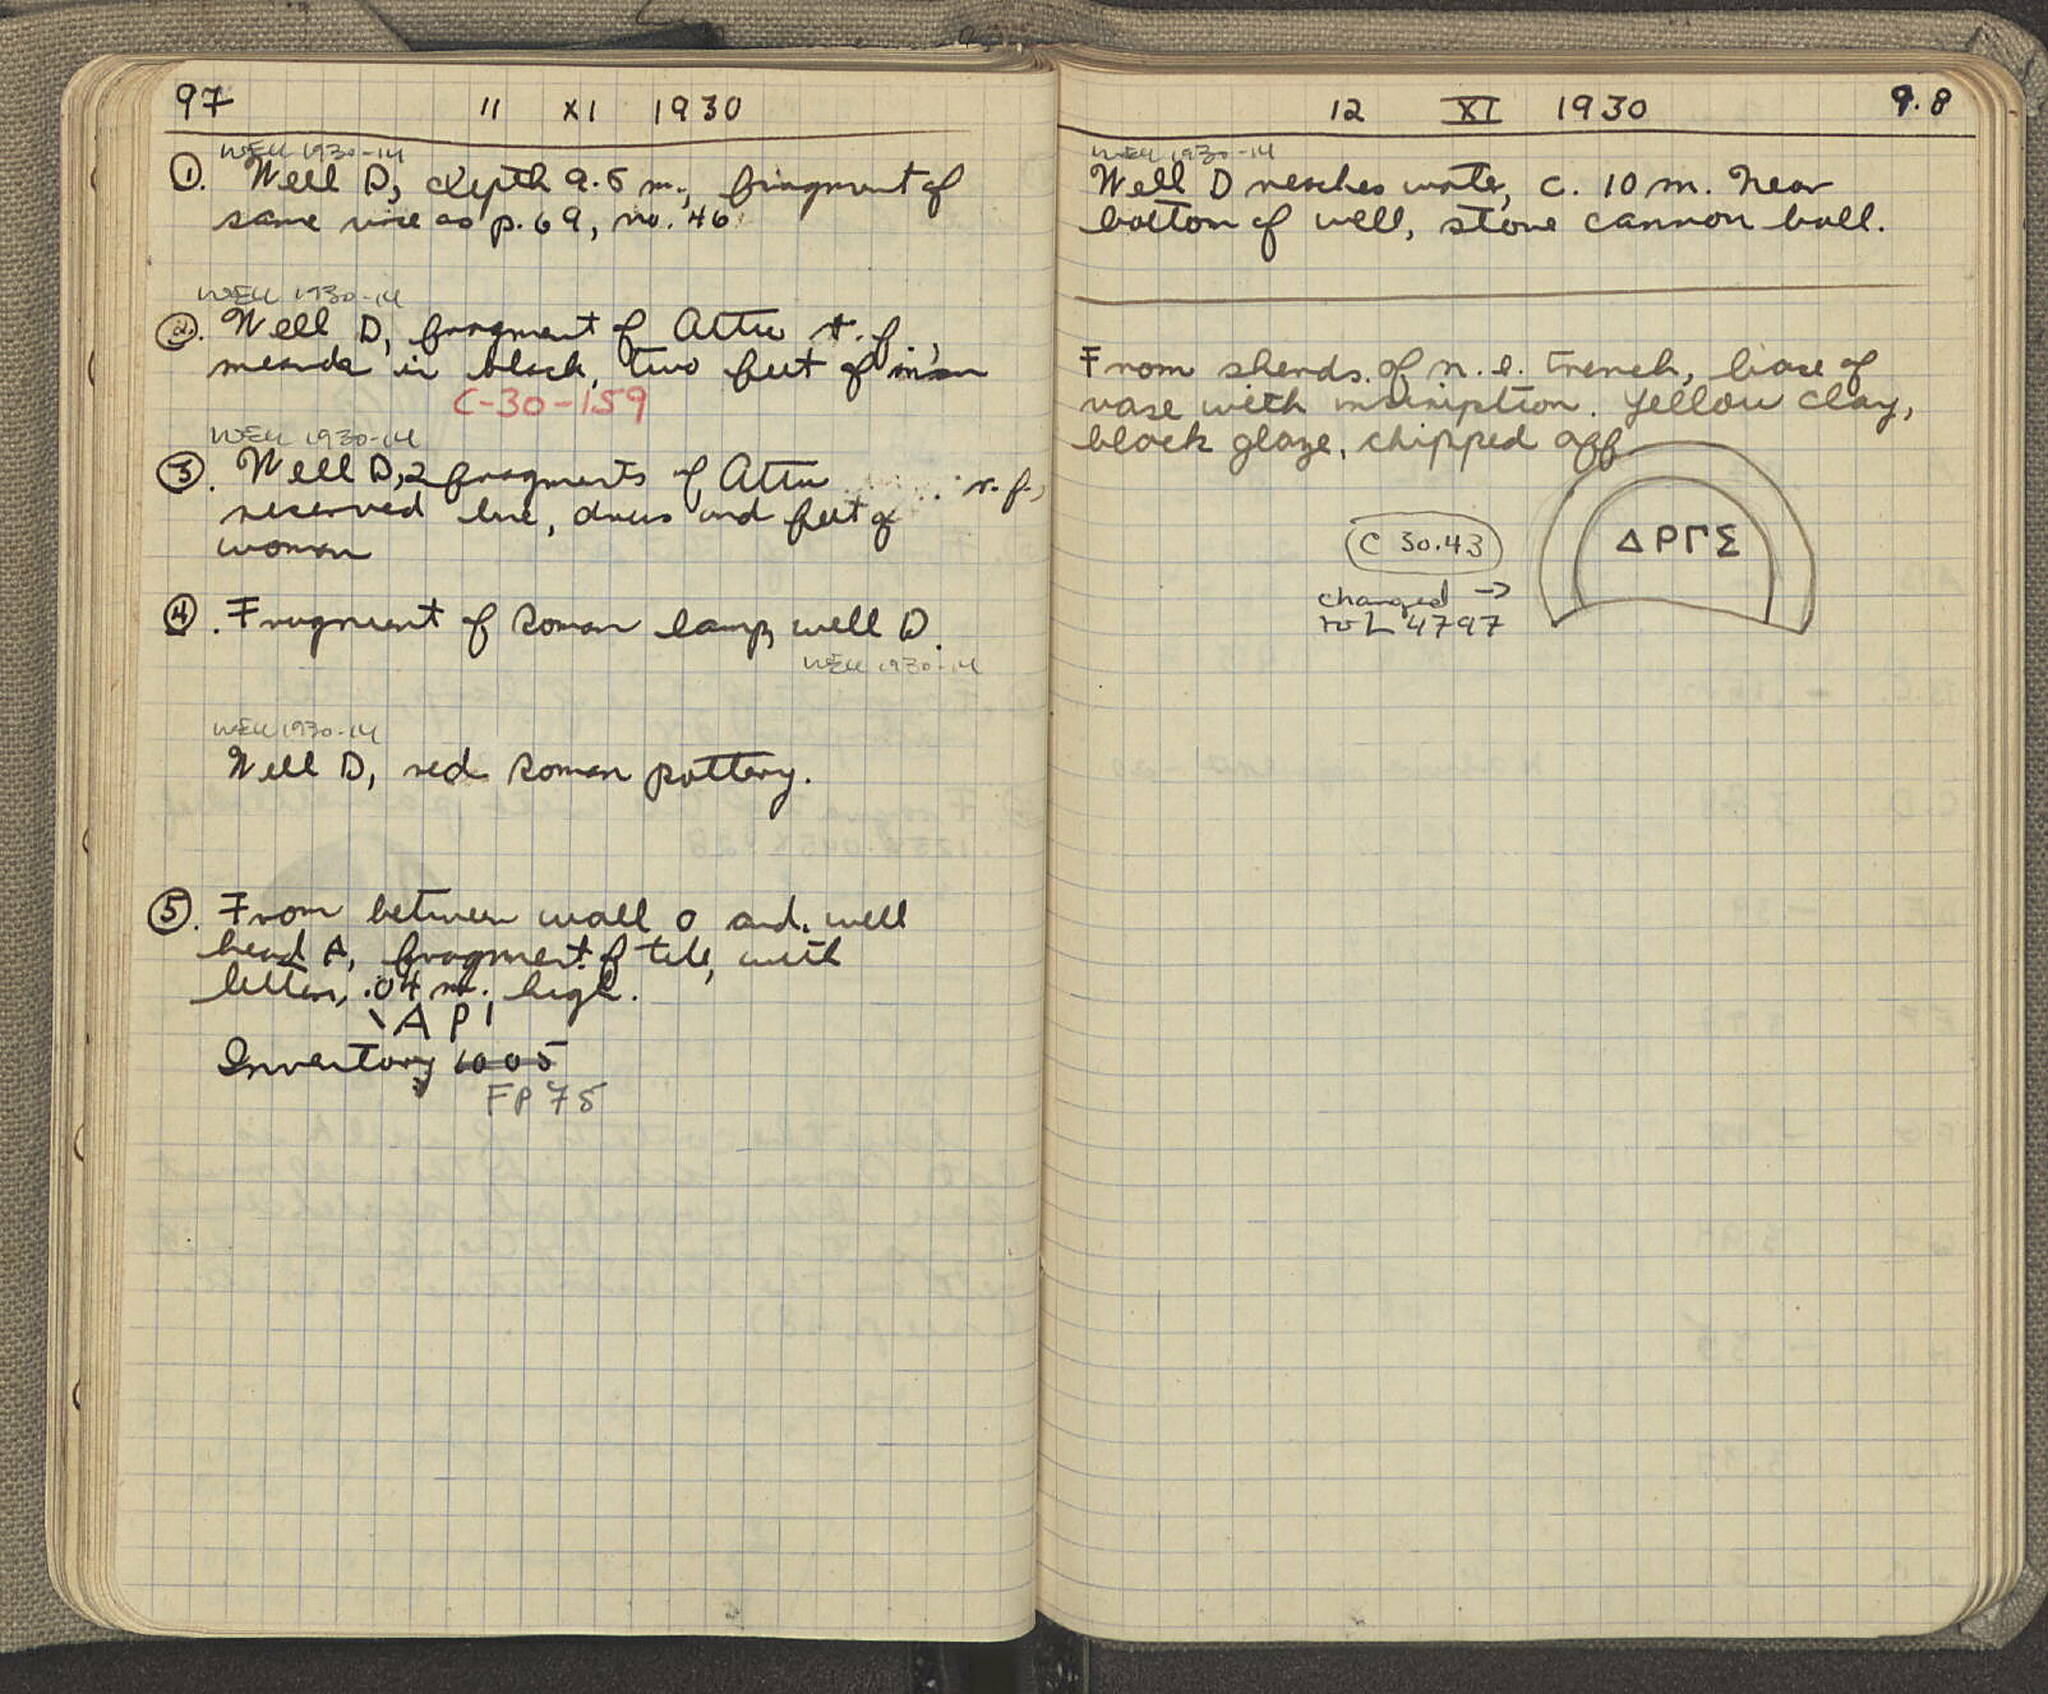 97
11 XI 1930
Well 1930-14
1. Well D, depth 9.5 m., fragment of
same vase as p. 69, no. 46
Well 1930-14
2. Well D, fragment of Attic r. f.,
meander in black, two feet of man
C-30-159
Well 1930-14
3. Well D, 2 fragments of Attic r. f.,
reserved line, dress and feet of
woman
4. Fragment of Roman lamp, well D.
Well 1930-14
Well 1930-14
Well D, red Roman pottery.
5. From between wall O and well
head A, fragment of tile, with
letters, .04 m. high.
\ΑΡΙ
Inventory 1005
FP 75
12 XI 1930
98
Well 1930-14
Well D reaches water, c. 10 m. Near
bottom of well, stone cannon ball.
From sherds of n. e. trench, base of
vase with inscription. Yellow clay,
black glaze, chipped off
ΔΡΓΣ
C 30.43
changed →
to L 4797